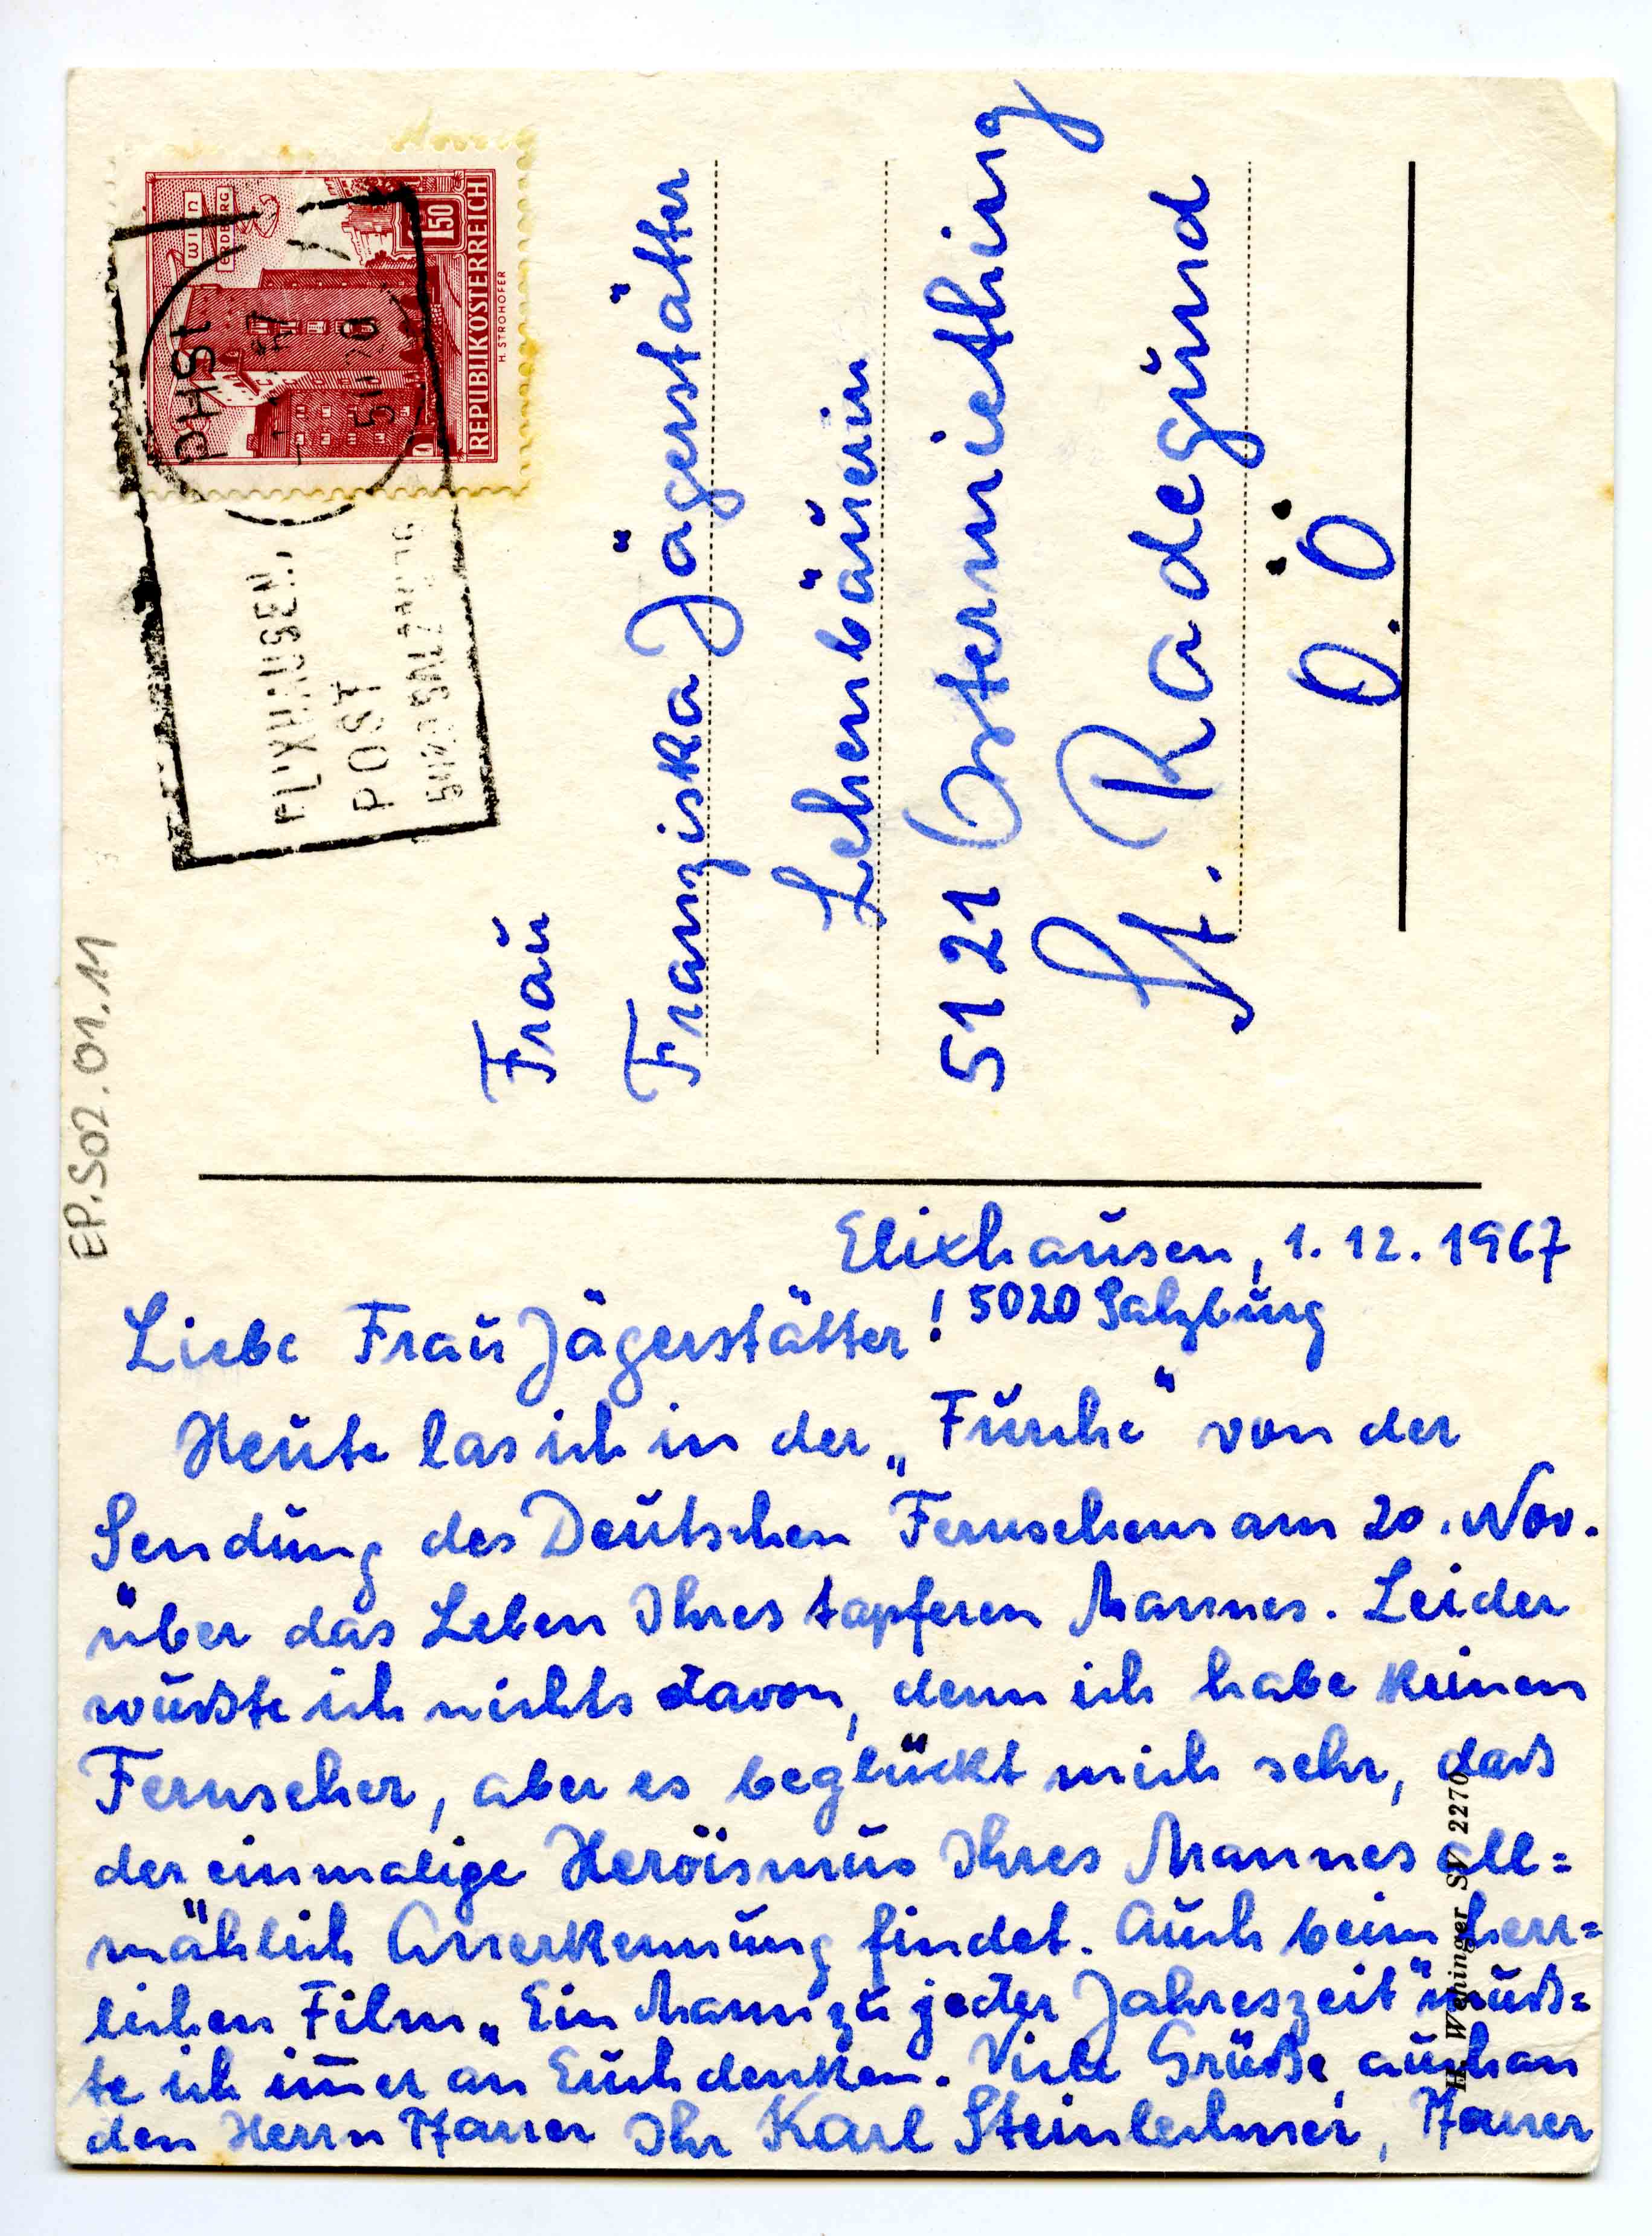 EP.S02.01.11
WIEN
ERDBERG
1.50
REPUBLIK ÖSTERREICH
H. STROHOFER
POST
Frau
Franziska Jägerstätter
Lehenbäuerin
5121 Ostermiething
St. Radegund
O.Ö
Elixhausen, 1.12.1967
5020 Salzburg
Liebe Frau Jägerstätter!
Heute las ich in der „Furche" von der
Sendung des Deutschen Fernsehens am 20. Nov.
über das Leben Ihres tapferen Mannes. Leider
wußte ich nichts davon, denn ich habe keinen
Fernseher, aber es beglückt mich sehr, daß
der einmalige Heroismus Ihres Mannes all=
mählich Anerkennung findet. Auch beim herr=
lichen Film „Ein Mann zu jeder Jahreszeit" muß=
te ich im̅er an Euch denken. Viele Grüße, auch an
den Herrn Pfarrer Ihr Karl Steinlechner, Pfarrer
SV 2270